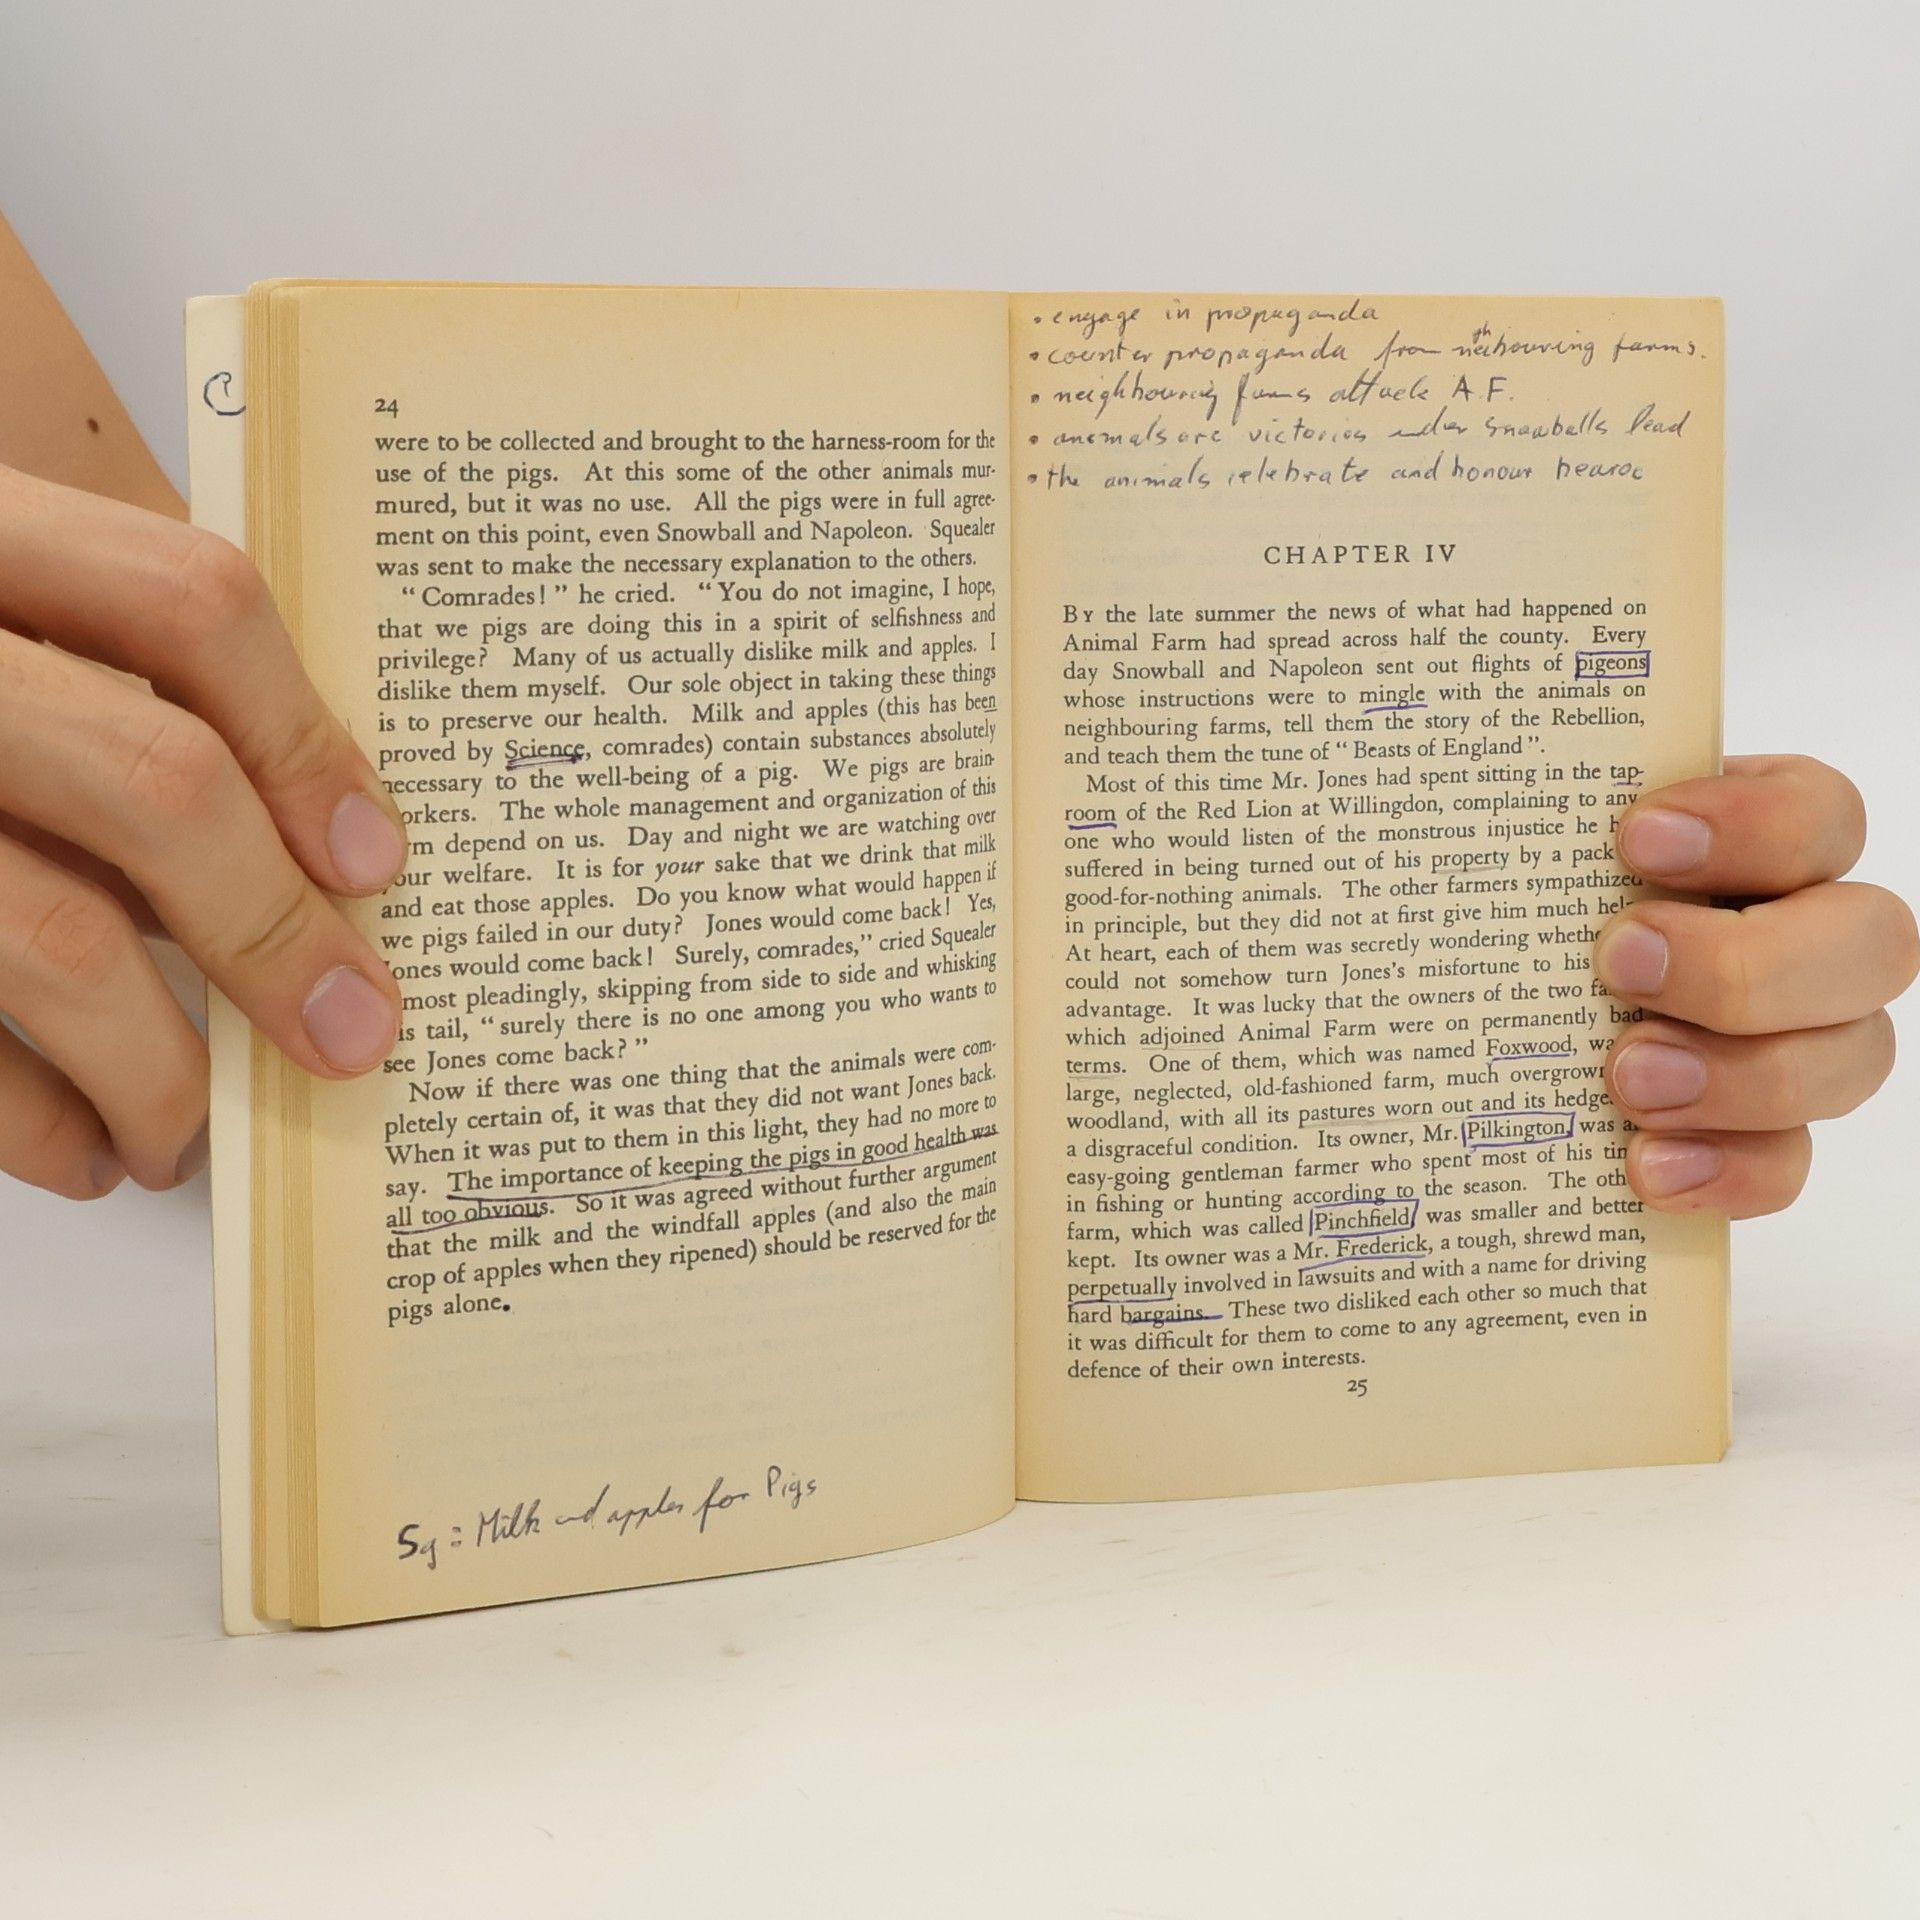 24
were to be collected and brought to the harness-room for the
use of the pigs. At this some of the other animals mur-
mured, but it was no use. All the pigs were in full agree-
ment on this point, even Snowball and Napoleon. Squealer
was sent to make the necessary explanation to the others.
“Comrades!” he cried. “You do not imagine, I hope,
that we pigs are doing this in a spirit of selfishness and
privilege? Many of us actually dislike milk and apples. I
dislike them myself. Our sole object in taking these things
is to preserve our health. Milk and apples (this has been
proved by Science, comrades) contain substances absolutely
necessary to the well-being of a pig. We pigs are brain-
orkers. The whole management and organization of this
rm depend on us. Day and night we are watching over
your welfare. It is for your sake that we drink that milk
and eat those apples. Do you know what would happen if
we pigs failed in our duty? Jones would come back! Yes,
Jones would come back! Surely, comrades,” cried Squealer
most pleadingly, skipping from side to side and whisking
is tail, “surely there is no one among you who wants to
see Jones come back?”
Now if there was one thing that the animals were com-
pletely certain of, it was that they did not want Jones back.
When it was put to them in this light, they had no more to
say. The importance of keeping the pigs in good health was
all too obvious. So it was agreed without further argument
that the milk and the windfall apples (and also the main
crop of apples when they ripened) should be reserved for the
pigs alone.
Sq = Milk and apples for Pigs
• engage in propaganda
• counter propaganda from neighbouring farms.
• neighbouring farms attack A.F.
• animals are victorios under Snowballs lead
• the animals celebrate and honour hearoe
CHAPTER IV
BY the late summer the news of what had happened on
Animal Farm had spread across half the county. Every
day Snowball and Napoleon sent out flights of pigeons
whose instructions were to mingle with the animals on
neighbouring farms, tell them the story of the Rebellion,
and teach them the tune of “Beasts of England”.
Most of this time Mr. Jones had spent sitting in the tap-
room of the Red Lion at Willingdon, complaining to any-
one who would listen of the monstrous injustice he h
suffered in being turned out of his property by a pack
good-for-nothing animals. The other farmers sympathized
in principle, but they did not at first give him much hel
At heart, each of them was secretly wondering wheth
could not somehow turn Jones’s misfortune to his
advantage. It was lucky that the owners of the two fa
which adjoined Animal Farm were on permanently bad
terms. One of them, which was named Foxwood, wa
large, neglected, old-fashioned farm, much overgrow
woodland, with all its pastures worn out and its hedge
a disgraceful condition. Its owner, Mr. Pilkington, was a
easy-going gentleman farmer who spent most of his tim
in fishing or hunting according to the season. The oth
farm, which was called Pinchfield, was smaller and better
kept. Its owner was a Mr. Frederick, a tough, shrewd man,
perpetually involved in lawsuits and with a name for driving
hard bargains. These two disliked each other so much that
it was difficult for them to come to any agreement, even in
defence of their own interests.
25